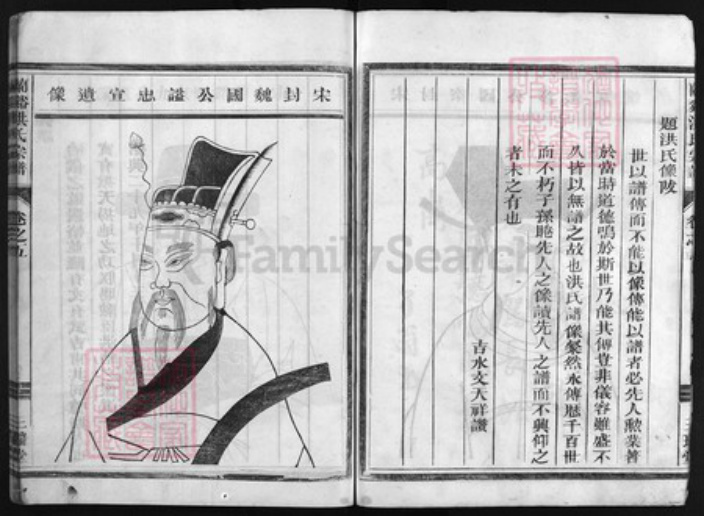 題洪氏像陵
世以譜傳而不能以像傳能以譜者必先人勲業著
於當時道德鳴於斯世乃能其傳豈非儀容雖盛不
久皆以無譜之故也洪氏譜像粲然永傳歷千百世
而不朽子孫睹先人之像讀先人之譜而不興仰之
者未之有也
吉水文天祥讚
宋封魏國公謚忠宣遺像
蘭谿洪氏宗譜
卷之五
FamilySearch